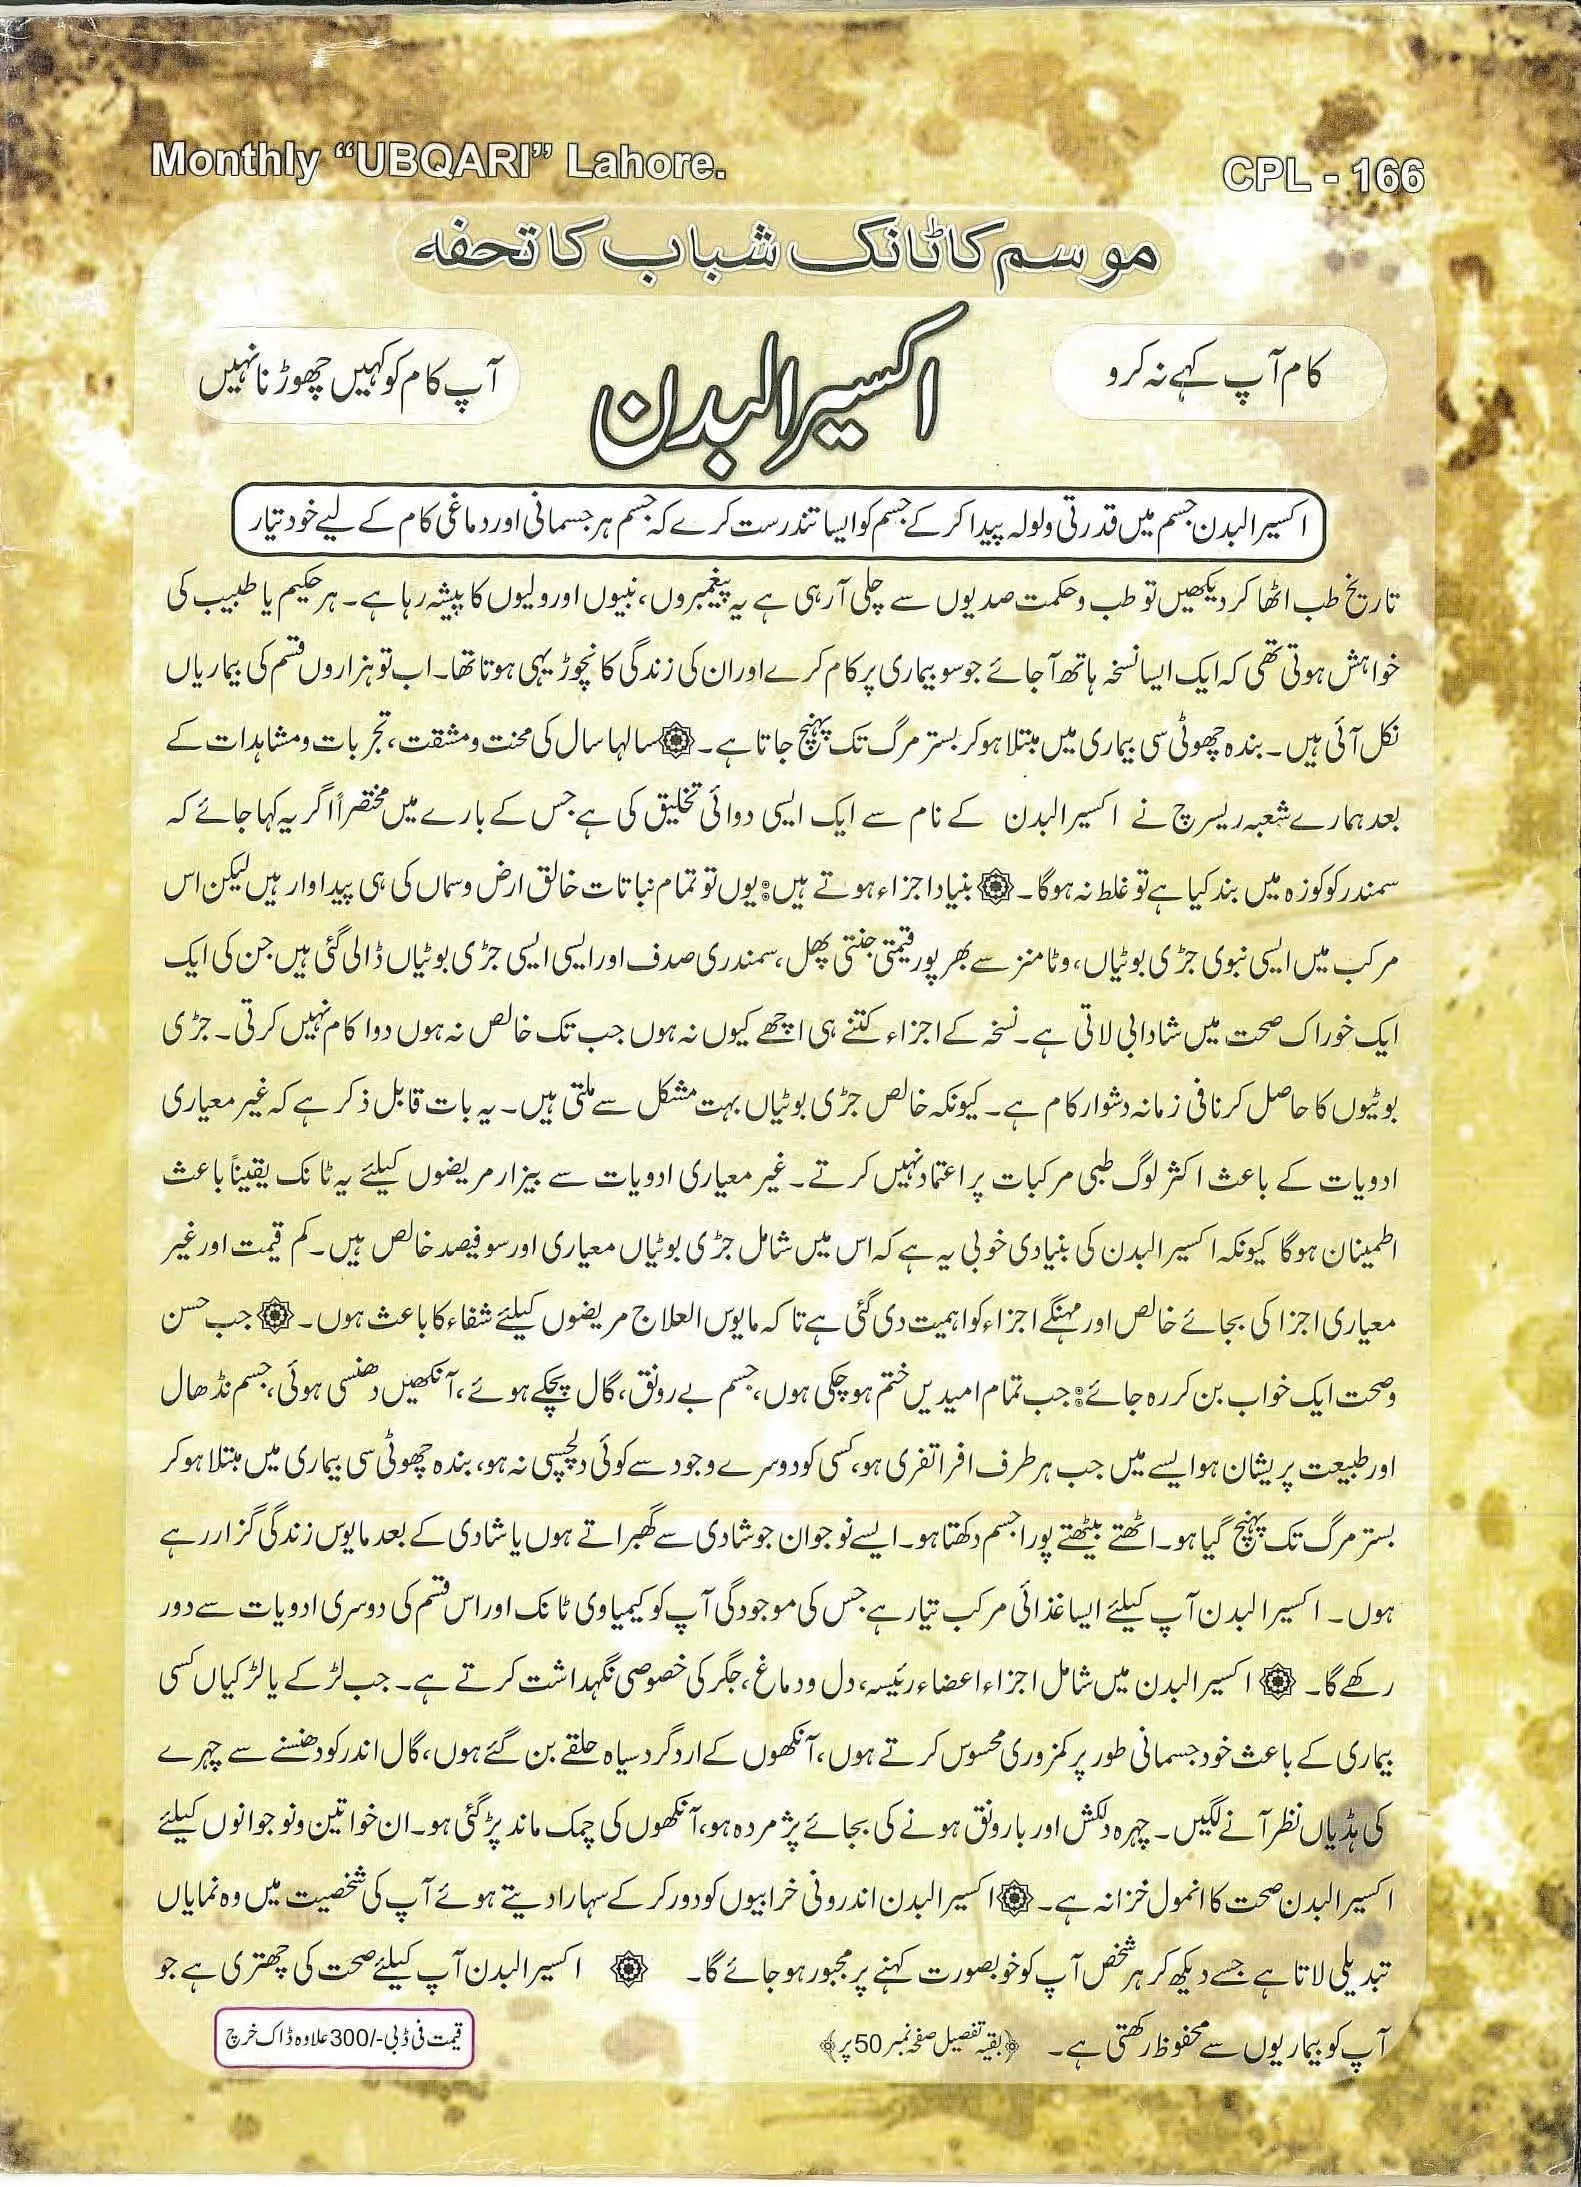 Monthly “UBQARI” Lahore.
CPL - 166
موسم کا ٹانک شباب کا تحفہ
کام آپ کہے نہ کرو
اکسیر البدن
آپ کام کو کہیں چھوڑنا نہیں
اکسیر البدن جسم میں قدرتی ولولہ پیدا کر کے جسم کو ایسا تندرست کرے کہ جسم ہر جسمانی اور دماغی کام کے لیے خود تیار
تاریخ طب اٹھا کر دیکھیں تو طب و حکمت صدیوں سے چلی آ رہی ہے یہ پیغمبروں، نبیوں اور ولیوں کا پیشہ رہا ہے۔ ہر حکیم یا طبیب کی
خواہش ہوتی تھی کہ ایک ایسا نسخہ ہاتھ آ جائے جو سو بیماری پر کام کرے اور ان کی زندگی کا نچوڑ یہی ہوتا تھا۔ اب تو ہزاروں قسم کی بیماریاں
نکل آئی ہیں۔ بندہ چھوٹی سی بیماری میں مبتلا ہو کر بستر مرگ تک پہنچ جاتا ہے۔ سالہا سال کی محنت و مشقت، تجربات و مشاہدات کے
بعد ہمارے شعبہ ریسرچ نے اکسیر البدن کے نام سے ایک ایسی دوائی تخلیق کی ہے جس کے بارے میں مختصراً اگر یہ کہا جائے کہ
سمندر کو کوزہ میں بند کیا ہے تو غلط نہ ہوگا۔ بنیاد اجزاء ہوتے ہیں: یوں تو تمام نباتات خالق ارض و سماں کی ہی پیداوار ہیں لیکن اس
مرکب میں ایسی نبوی جڑی بوٹیاں، وٹامنز سے بھرپور قیمتی جنتی پھل، سمندری صدف اور ایسی ایسی جڑی بوٹیاں ڈالی گئی ہیں جن کی ایک
ایک خوراک صحت میں شادابی لاتی ہے۔ نسخہ کے اجزاء کتنے ہی اچھے کیوں نہ ہوں جب تک خالص نہ ہوں دوا کام نہیں کرتی۔ جڑی
بوٹیوں کا حاصل کرنا فی زمانہ دشوار کام ہے۔ کیونکہ خالص جڑی بوٹیاں بہت مشکل سے ملتی ہیں۔ یہ بات قابل ذکر ہے کہ غیر معیاری
ادویات کے باعث اکثر لوگ طبی مرکبات پر اعتماد نہیں کرتے۔ غیر معیاری ادویات سے بیزار مریضوں کیلئے یہ ٹانک یقیناً باعث
اطمینان ہوگا کیونکہ اکسیر البدن کی بنیادی خوبی یہ ہے کہ اس میں شامل جڑی بوٹیاں معیاری اور سو فیصد خالص ہیں۔ کم قیمت اور غیر
معیاری اجزا کی بجائے خالص اور مہنگے اجزاء کو اہمیت دی گئی ہے تا کہ مایوس العلاج مریضوں کیلئے شفاء کا باعث ہوں۔ جب حسن
و صحت ایک خواب بن کر رہ جائے: جب تمام امیدیں ختم ہو چکی ہوں، جسم بے رونق، گال پچکے ہوئے، آنکھیں دھنسی ہوئی، جسم نڈھال
اور طبیعت پریشان ہو ایسے میں جب ہر طرف افراتفری ہو، کسی کو دوسرے وجود سے کوئی دلچسپی نہ ہو، بندہ چھوٹی سی بیماری میں مبتلا ہو کر
بستر مرگ تک پہنچ گیا ہو۔ اٹھتے بیٹھتے پورا جسم دکھتا ہو۔ ایسے نوجوان جو شادی سے گھبراتے ہوں یا شادی کے بعد مایوس زندگی گزار رہے
ہوں۔ اکسیر البدن آپ کیلئے ایسا غذائی مرکب تیار ہے جس کی موجودگی آپ کو کیمیاوی ٹانک اور اس قسم کی دوسری ادویات سے دور
رکھے گا۔ اکسیر البدن میں شامل اجزاء اعضاء رئیسہ، دل و دماغ، جگر کی خصوصی نگہداشت کرتے ہے۔ جب لڑکے یا لڑکیاں کسی
بیماری کے باعث خود جسمانی طور پر کمزوری محسوس کرتے ہوں، آنکھوں کے ارد گرد سیاہ حلقے بن گئے ہوں، گال اندر کو دھنسنے سے چہرے
کی ہڈیاں نظر آنے لگیں۔ چہرہ دلکش اور بارونق ہونے کی بجائے پژمردہ ہو، آنکھوں کی چمک ماند پڑ گئی ہو۔ ان خواتین و نوجوانوں کیلئے
اکسیر البدن صحت کا انمول خزانہ ہے۔ اکسیر البدن اندرونی خرابیوں کو دور کر کے سہارا دیتے ہوئے آپ کی شخصیت میں وہ نمایاں
تبدیلی لاتا ہے جسے دیکھ کر ہر شخص آپ کو خوبصورت کہنے پر مجبور ہو جائے گا۔ اکسیر البدن آپ کیلئے صحت کی چھتری ہے جو
آپ کو بیماریوں سے محفوظ رکھتی ہے۔ ﴿بقیہ تفصیل صفحہ نمبر 50 پر﴾
قیمت فی ڈبی -/300 علاوہ ڈاک خرچ